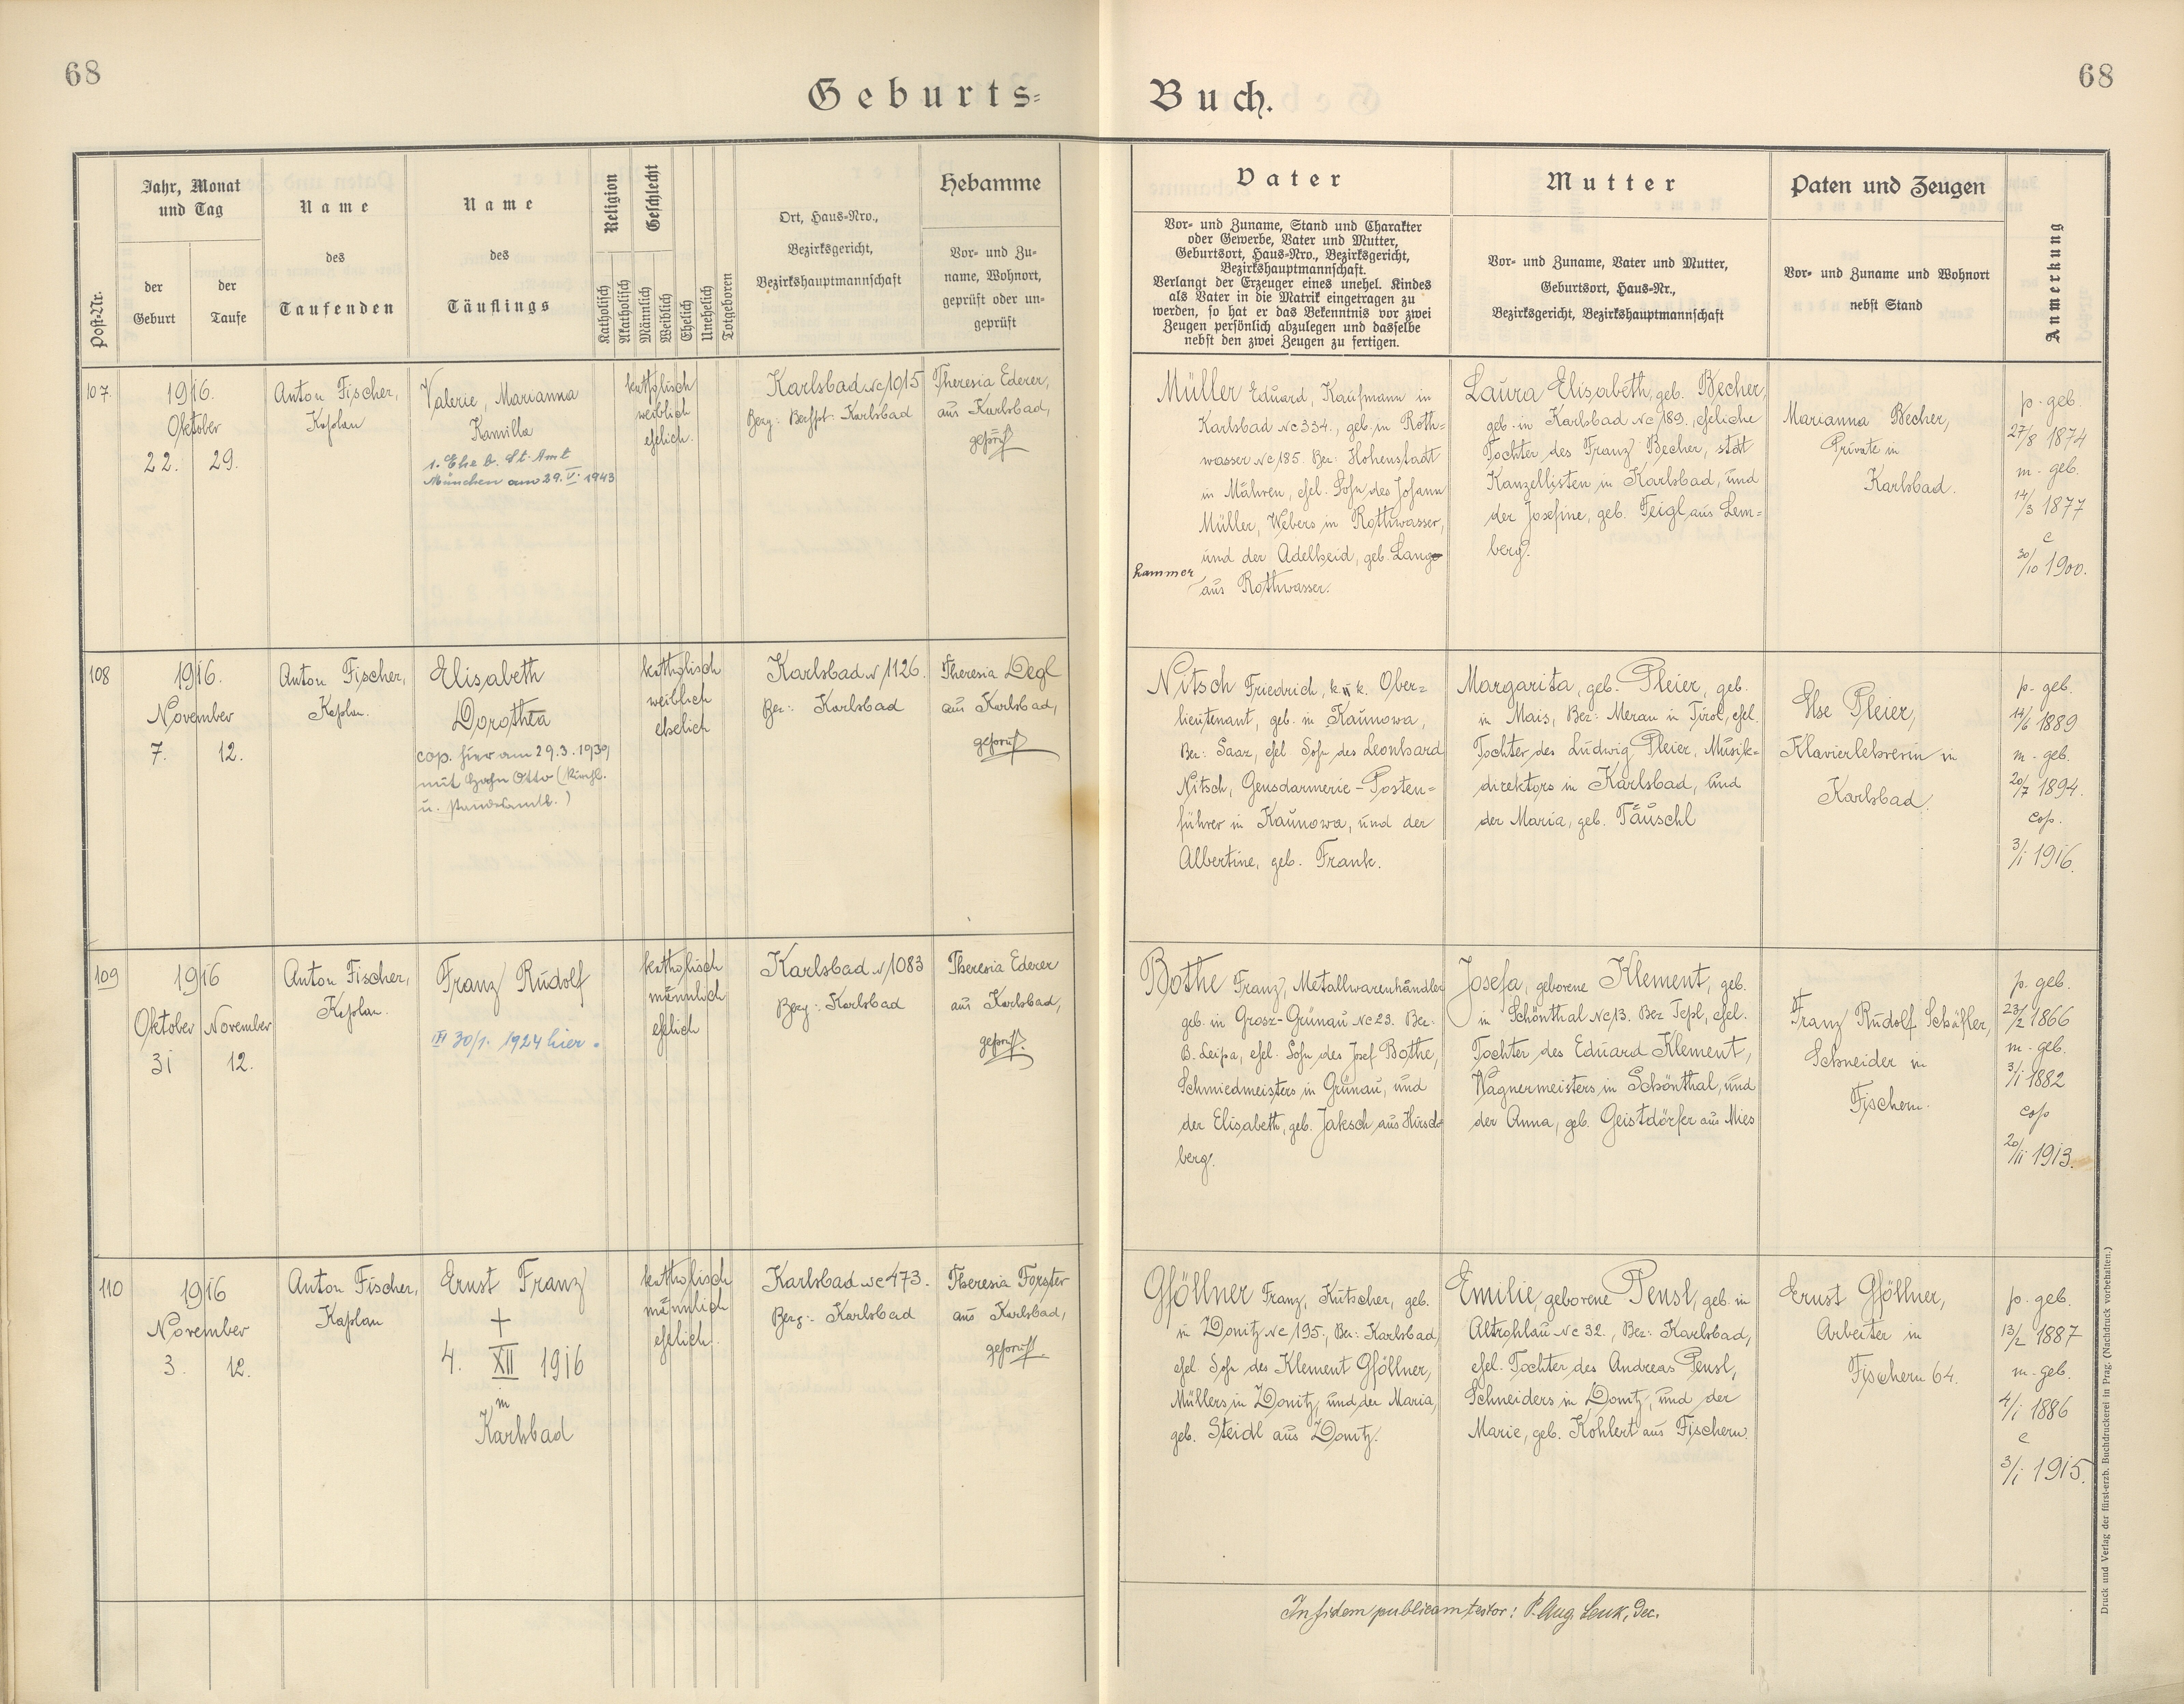 68
Geburts=
Buch.
68
Post-Nr.
Jahr, Monat
und Tag
der
Geburt
der
Taufe
Name
des
Taufenden
Name
des
Täuflings
Religion
Katholisch
Akatholisch
Geschlecht
Männlich
Weiblich
Ehelich
Unehelich
Totgeboren
Ort, Haus-Nro.,
Bezirksgericht,
Bezirkshauptmannschaft
Hebamme
Vor- und Zu-
name, Wohnort,
geprüft oder un-
geprüft
Vater
Vor- und Zuname, Stand und Charakter
oder Gewerbe, Vater und Mutter,
Geburtsort, Haus-Nro., Bezirksgericht,
Bezirkshauptmannschaft.
Verlangt der Erzeuger eines unehel. Kindes
als Vater in die Matrik eingetragen zu
werden, so hat er das Bekenntnis vor zwei
Zeugen persönlich abzulegen und dasselbe
nebst den zwei Zeugen zu fertigen.
Mutter
Vor- und Zuname, Vater und Mutter,
Geburtsort, Haus-Nr.,
Bezirksgericht, Bezirkshauptmannschaft
Paten und Zeugen
Vor- und Zuname und Wohnort
nebst Stand
Anmerkung
107.
1916.
Oktober
22. 29.
Anton Fischer,
Kaplan
Valerie, Marianna
Kamilla
1. Ehe b. St. Amt
München am 29. V. 1943
katholisch
weiblich
ehelich.
Karlsbad Nc 1015
Bezg: Bezhpt: Karlsbad
Theresia Ederer,
aus Karlsbad,
geprüft
Müller Eduard, Kaufmann in
Karlsbad Nc 334., geb. in Roth=
wasser Nc 185. Bez: Hohenstadt
in Mähren, ehel. Sohn des Johann
Müller, Webers in Rothwasser,
und der Adelheid, geb. Lang
hammer
aus Rothwasser.
Laura Elisabeth, geb. Becher,
geb. in Karlsbad Nc 189., eheliche
Tochter des Franz Becher, stdt
Kanzellisten in Karlsbad, und
der Josefine, geb. Feigl aus Lem=
berg.
Marianna Becher,
Private in
Karlsbad.
p. geb.
27/8 1874
m. geb.
14/3 1877
c
30/10 1900.
108
1916.
November
7. 12.
Anton Fischer,
Kaplan.
Elisabeth
Dorothea
cop. hier am 29.3.1939
mit Hahn Otto (kirchl.
u. standesamtl.)
katholisch
weiblich
ehelich
Karlsbad N 1126.
Bez: Karlsbad
Theresia Degl
aus Karlsbad,
geprüft
Nitsch Friedrich, k. u. k. Ober=
lieutenant, geb. in Kaunowa,
Bez: Saaz, ehel Sohn des Leonhard
Nitsch, Gensdarmerie-Posten=
führer in Kaunowa, und der
Albertine, geb. Frank.
Margarita, geb. Pleier, geb.
in Mais, Bez: Meran in Tirol, ehel.
Tochter des Ludwig Pleier, Musik=
direktors in Karlsbad, und
der Maria, geb. Täuschl
Else Pleier,
Klavierlehrerin in
Karlsbad.
p. geb.
14/6 1889
m. geb.
20/7 1894.
cop.
3/1 1916.
109
1916
Oktober November
31 12.
Anton Fischer,
Kaplan.
Franz Rudolf
III 30/1. 1924 hier.
katholisch
männlich
ehelich
Karlsbad N 1083
Bezg: Karlsbad
Theresia Ederer
aus Karlsbad,
geprüft.
Bothe Franz, Metallwarenhändler
geb. in Grosz-Grünau Nc 23. Bez:
B. Leipa, ehel. Sohn des Josef Bothe,
Schmiedmeisters in Grünau, und
der Elisabeth, geb. Jaksch aus Hirsch=
berg.
Josefa, geborene Klement, geb.
in Schönthal Nc 13. Bez Tepl, ehel.
Tochter des Eduard Klement,
Wagnermeisters in Schönthal, und
der Anna, geb. Geistdörfer aus Mies
Franz Rudolf Schäfler,
Schneider in
Fischern.
p. geb.
23/2 1866
m. geb.
3/1 1882
cop
20/11 1913.
110
1916
November
3. 12.
Anton Fischer,
Kaplan
Ernst Franz
+
4. XII 1916
in
Karlsbad
katholisch
männlich
ehelich.
Karlsbad Nc 473.
Bezg: Karlsbad
Theresia Forster
aus Karlsbad,
geprüft.
Gföllner Franz, Kutscher, geb.
in Donitz Nc 195., Bez: Karlsbad,
ehel Sohn des Klement Gföllner,
Müllers in Donitz, und der Maria,
geb. Steidl aus Donitz.
Emilie, geborene Pensl, geb. in
Altrohlau Nc 32., Bez: Karlsbad,
ehel. Tochter des Andreas Pensl,
Schneiders in Donitz, und der
Marie, geb. Kohlert aus Fischern.
Ernst Gföllner,
Arbeiter in
Fischern 64.
p. geb.
13/2 1887
m. geb.
4/1 1886
c
3/1 1915.
In fidem publicam testor: P. Aug. Leuk, Dec.
Druck und Verlag der fürst-erzb. Buchdruckerei in Prag. (Nachdruck vorbehalten.)